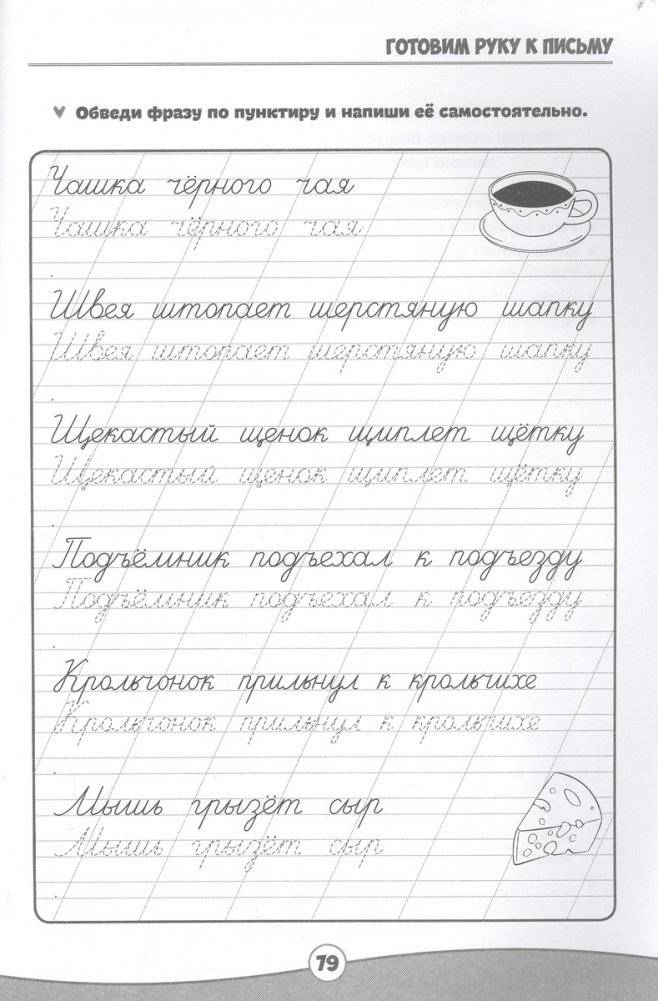 ГОТОВИМ РУКУ К ПИСЬМУ
Обведи фразу по пунктиру и напиши её самостоятельно.
Чашка чёрного чая
Чашка чёрного чая
Швея штопает шерстяную шапку
Швея штопает шерстяную шапку
Щекастый щенок щиплет щётку
Щекастый щенок щиплет щётку
Подъёмник подъехал к подъезду
Подъёмник подъехал к подъезду
Крольчонок прильнул к крольчихе
Крольчонок прильнул к крольчихе
Мышь грызёт сыр
Мышь грызёт сыр
79